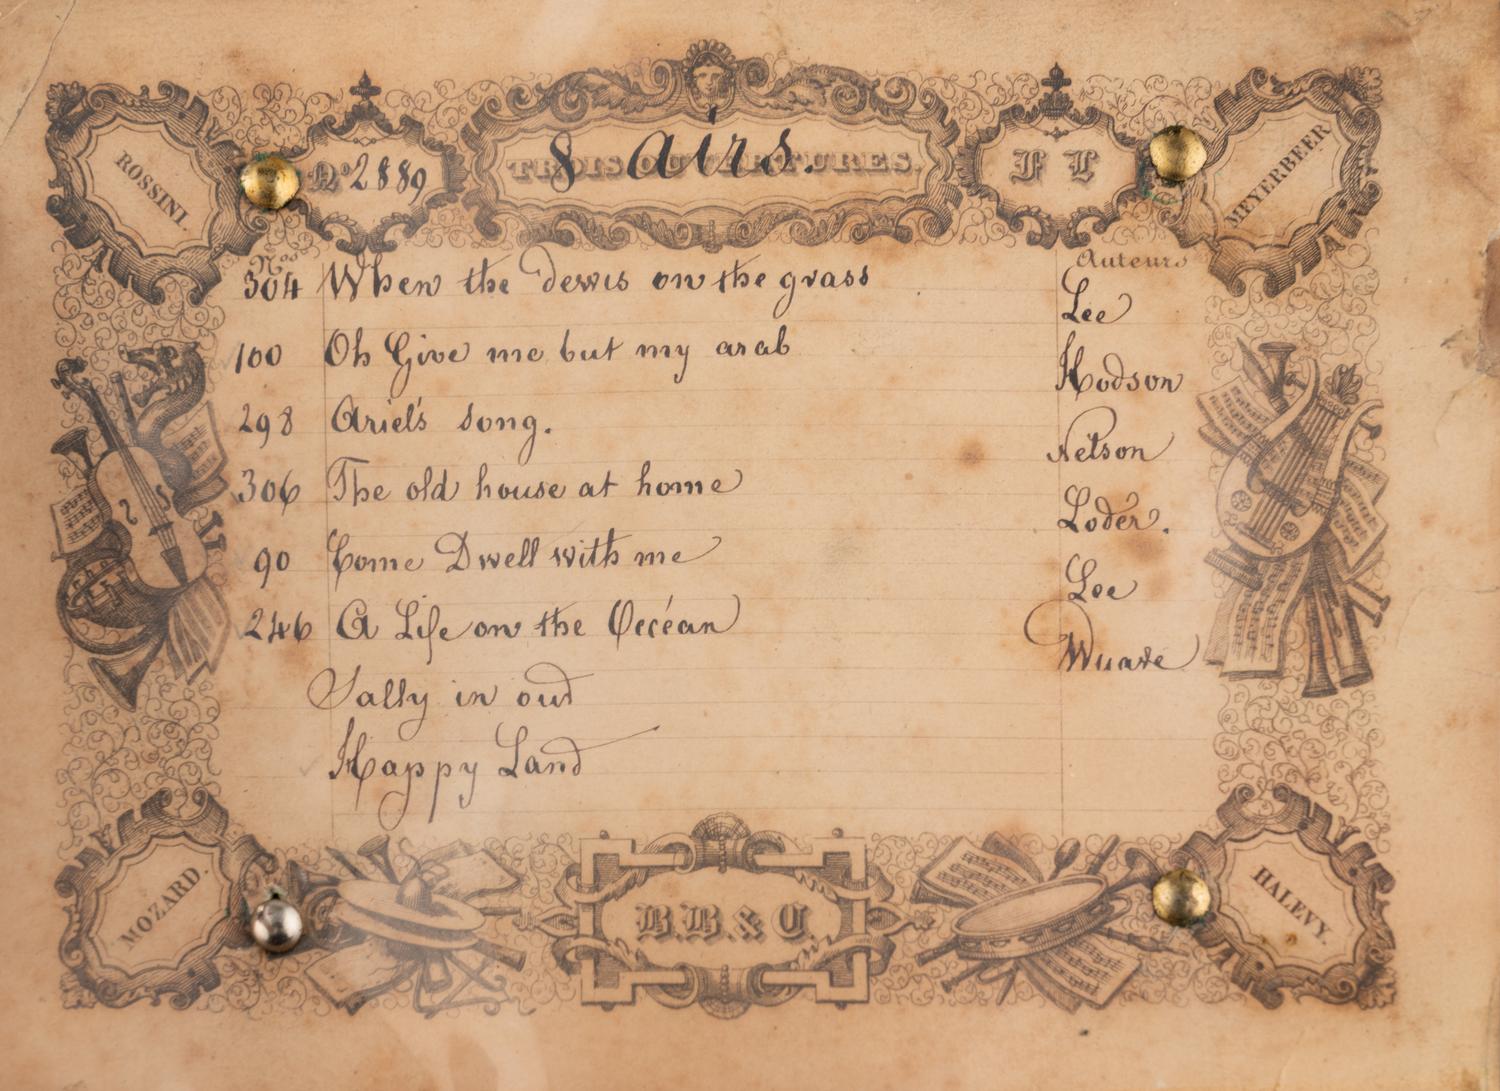 ROSSINI.
Nº 2889
TROIS OUVERTURES.
8 airs.
F L
MEYERBEER
Nos
Auteurs
304 When the dewis on the grass Lee
100 Oh Give me but my arab Hodson
298 Ariel's song. Nelson
306 The old house at home Loder.
90 Come Dwell with me Lee
246 A Life on the Occéan
Sally in our
Happy Land
MOZARD.
B.B. & C.
HALEVY.